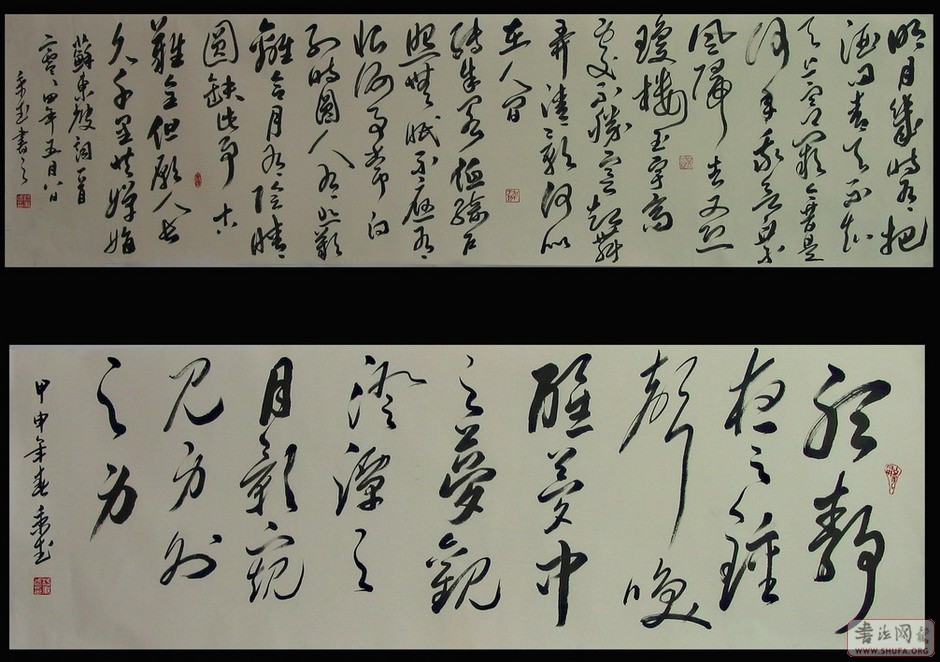 明月幾时有把
酒问青天不知
天上宫阙今昔是
何年我欲乘
风归去又恐
瓊楼玉宇高
處不胜寒起舞
弄清影何似
在人间
转朱阁低绮户
照無眠不應有
恨何事常向
别時圓人有悲歡
離合月有陰晴
圓缺此事古
難全但願人長
久千里共嬋娟
蘇東坡詞一首
二零零四年五月八日
書之
聽靜
夜之鐘
聲喚
醒夢中
之夢觀
澄潭之
月影窺
见身外
之身
甲申年春
書法网
WWW.SHUFA.ORG